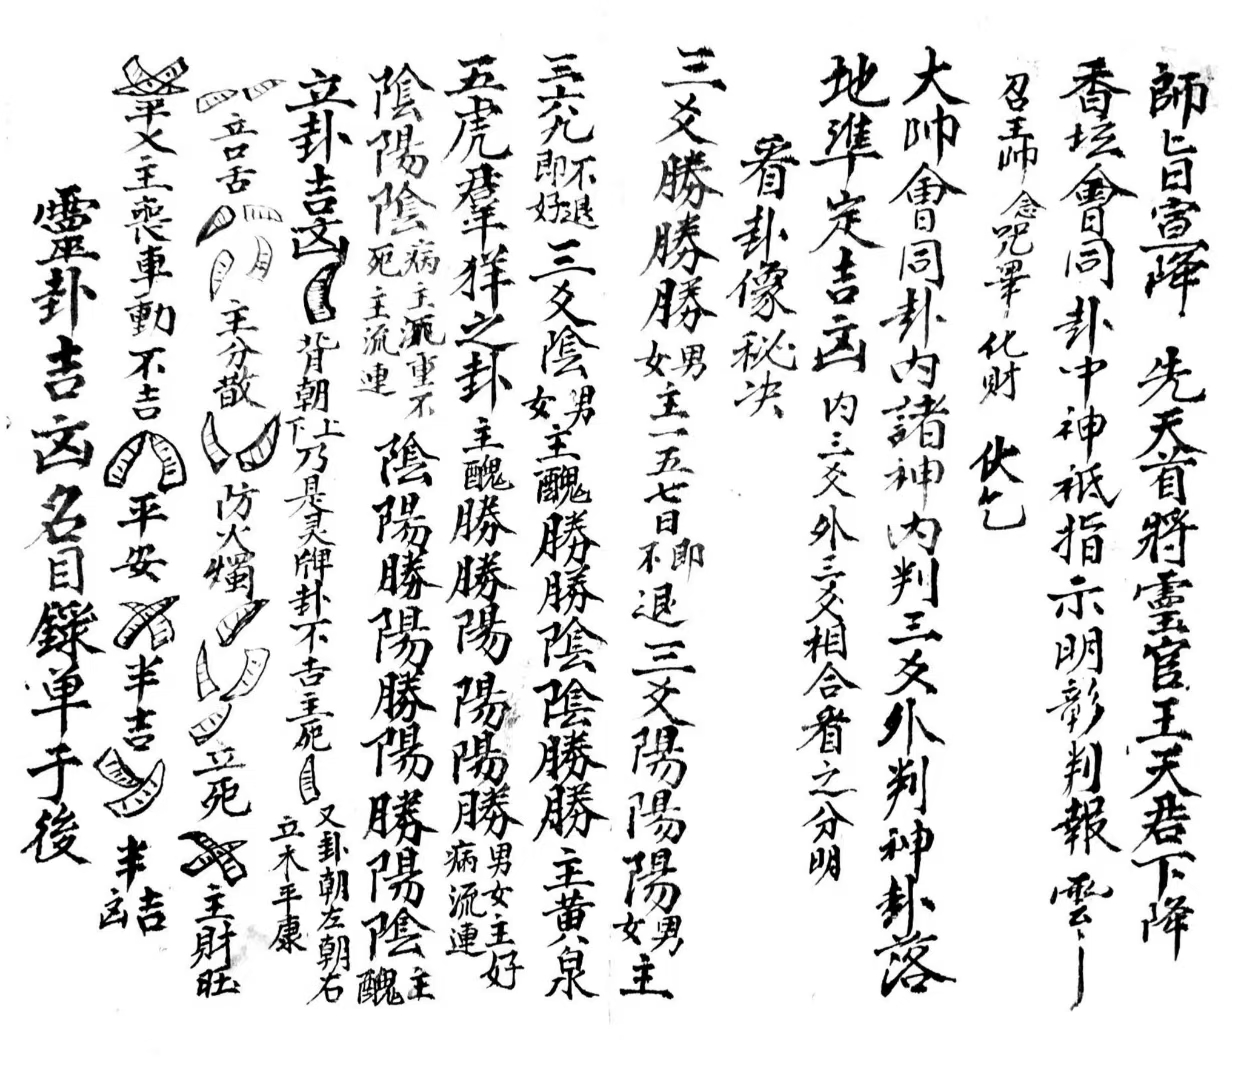 師旨宣降 先天首將靈官王天君下降
香坛會同卦中神祇指示明彰判報雲〻
召王帅念咒畢化財 伏乞
大帅會同卦内諸神内判三爻外判神卦落
地準定吉凶 内三爻外三爻相合看之分明
看卦像秘决
三爻勝勝勝男女主一五七日即不退三爻陽陽陽男女主
三六九不退即好三爻陰男女主醜勝勝陰陰勝勝主黄泉
五虎羣羊之卦主醜勝勝陽陽陽勝男女主好病流連
陰陽陰病主沉重不死主流連陰陽勝陽勝陽勝陽陰主醜
立卦吉凶背朝上下乃是灵牌卦不吉主死又卦朝左朝右立木平康
立口舌主分散防火燭立死主財旺
平火主喪車動不吉平安半吉半吉凶
靈卦吉凶名目錄单于後